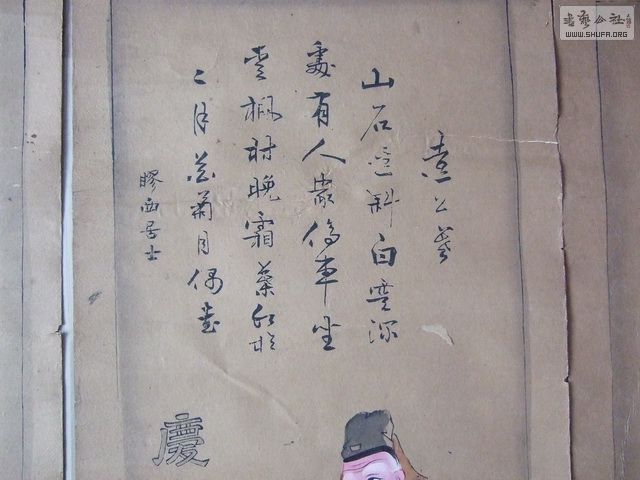 遠上寒
山石徑斜白雲深
處有人家停車坐
愛楓林晚霜葉紅於
二月花菊月偶書
膠西居士
慶
書藝公社
WWW.SHUFA.ORG